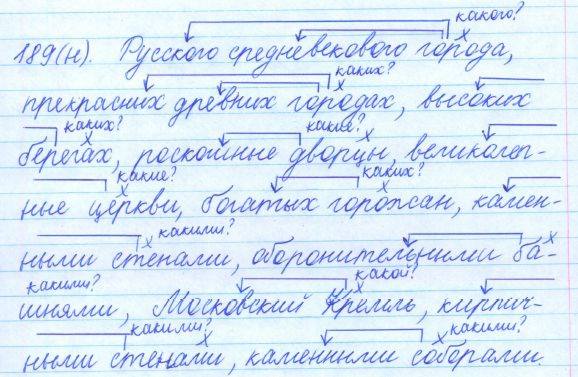 какого?
189(н). Русского средневекового города,
каких?
прекрасных древних городах, высоких
каких? какие?
берегах, роскошные дворцы, великолеп-
какие? каких?
ные церкви, богатых горожан, камен-
какими?
ными стенами, оборонительными ба-
какими? какой?
шнями, Московский Кремль, кирпич-
какими? какими?
ными стенами, каменными соборами.